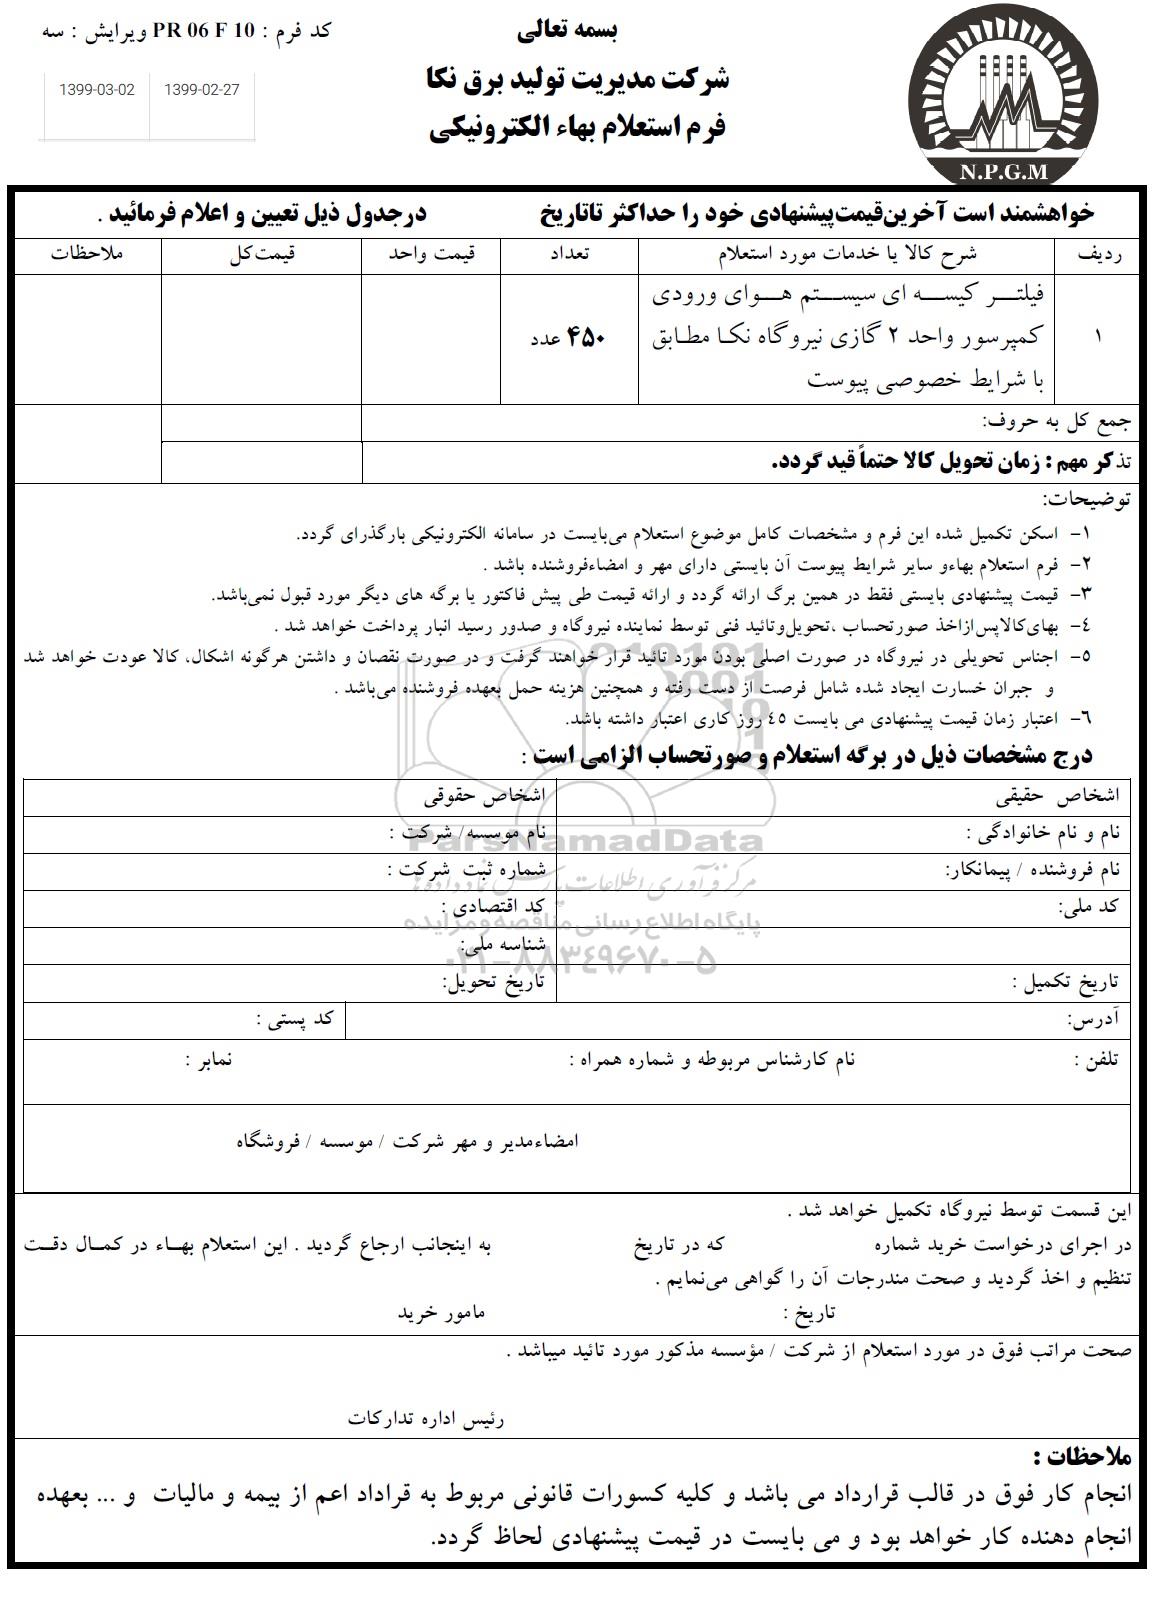 بسمه تعالی
کد فرم : PR 06 F 10 ویرایش : سه
شرکت مدیریت تولید برق نکا
فرم استعلام بهاء الکترونیکی
1399-03-02 1399-02-27
N.P.G.M
خواهشمند است آخرین‌قیمت‌پیشنهادی خود را حداکثر تاتاریخ درجدول ذیل تعیین و اعلام فرمائید .
ردیف شرح کالا یا خدمات مورد استعلام تعداد قیمت واحد قیمت‌کل ملاحظات
فیلتر کیسه ای سیستم هوای ورودی
۱ کمپرسور واحد ۲ گازی نیروگاه نکا مطابق ۴۵۰ عدد
با شرایط خصوصی پیوست
جمع کل به حروف:
تذکر مهم : زمان تحویل کالا حتماً قید گردد.
توضیحات:
۱- اسکن تکمیل شده این فرم و مشخصات کامل موضوع استعلام می‌بایست در سامانه الکترونیکی بارگذرای گردد.
۲- فرم استعلام بهاءو سایر شرایط پیوست آن بایستی دارای مهر و امضاءفروشنده باشد .
۳- قیمت پیشنهادی بایستی فقط در همین برگ ارائه گردد و ارائه قیمت طی پیش فاکتور یا برگه های دیگر مورد قبول نمی‌باشد.
٤- بهای‌کالاپس‌ازاخذ صورتحساب ،تحویل‌وتائید فنی توسط نماینده نیروگاه و صدور رسید انبار پرداخت خواهد شد .
٥- اجناس تحویلی در نیروگاه در صورت اصلی بودن مورد تائید قرار خواهند گرفت و در صورت نقصان و داشتن هرگونه اشکال، کالا عودت خواهد شد
و جبران خسارت ایجاد شده شامل فرصت از دست رفته و همچنین هزینه حمل بعهده فروشنده می‌باشد .
٦- اعتبار زمان قیمت پیشنهادی می بایست ٤٥ روز کاری اعتبار داشته باشد.
درج مشخصات ذیل در برگه استعلام و صورتحساب الزامی است :
اشخاص حقیقی اشخاص حقوقی
نام و نام خانوادگی : نام موسسه/ شرکت :
ParsNamadData
نام فروشنده / پیمانکار: شماره ثبت شرکت :
مرکز فرآوری اطلاعات پارس نماد داده ها
کد ملی: کد اقتصادی :
پایگاه اطلاع رسانی مناقصه و مزایده
شناسه ملی:
۰۲۱-۸۸۳٤۹۶۷۰-۵
تاریخ تکمیل : تاریخ تحویل:
آدرس: کد پستی :
تلفن : نام کارشناس مربوطه و شماره همراه : نمابر :
امضاءمدیر و مهر شرکت / موسسه / فروشگاه
این قسمت توسط نیروگاه تکمیل خواهد شد .
در اجرای درخواست خرید شماره که در تاریخ به اینجانب ارجاع گردید . این استعلام بهاء در کمال دقت
تنظیم و اخذ گردید و صحت مندرجات آن را گواهی می‌نمایم .
تاریخ : مامور خرید
صحت مراتب فوق در مورد استعلام از شرکت / مؤسسه مذکور مورد تائید میباشد .
رئیس اداره تدارکات
ملاحظات :
انجام کار فوق در قالب قرارداد می باشد و کلیه کسورات قانونی مربوط به قراداد اعم از بیمه و مالیات و ... بعهده
انجام دهنده کار خواهد بود و می بایست در قیمت پیشنهادی لحاظ گردد.